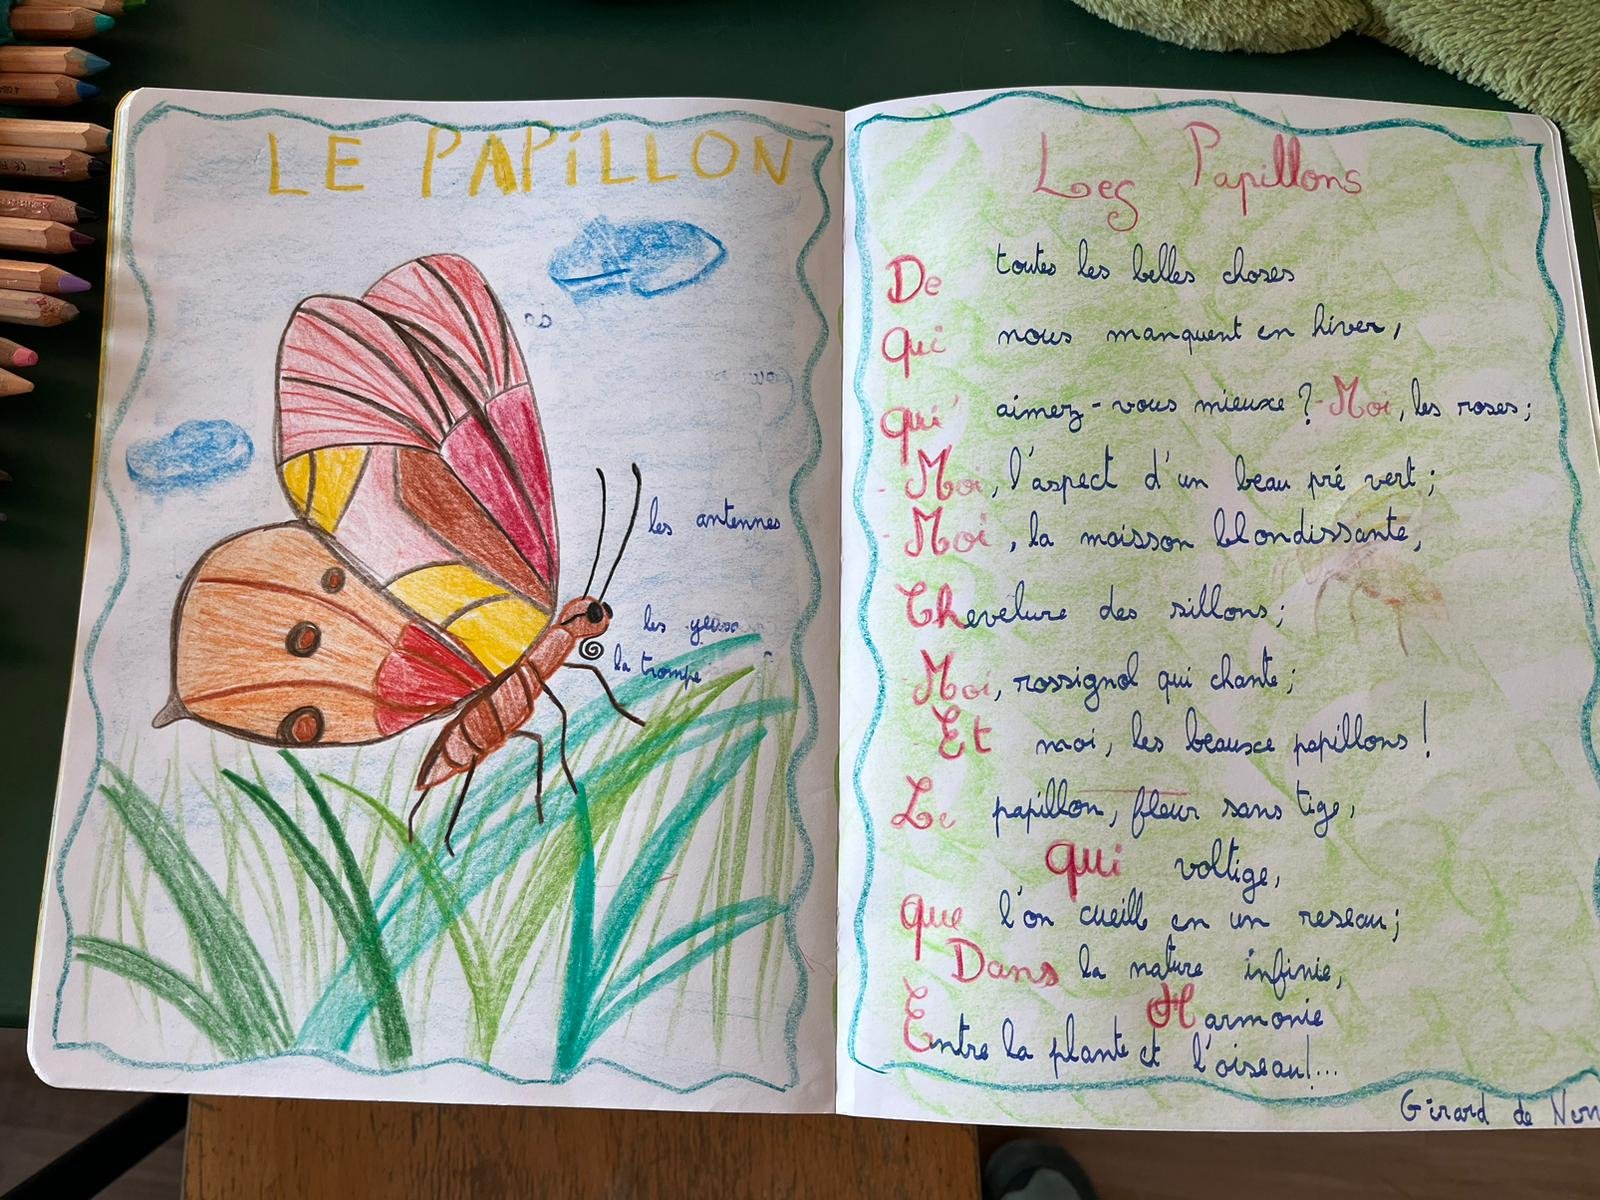 LE PAPiLLON
les antennes
les yeux
la trompe
Les Papillons
De toutes les belles choses
Qui nous manquent en hiver,
qu' aimez-vous mieux ? - Moi, les roses;
- Moi, l'aspect d'un beau pré vert;
- Moi, la moisson blondissante,
Chevelure des sillons;
- Moi, rossignol qui chante;
Et moi, les beaux papillons !
Le papillon, fleur sans tige,
qui voltige,
que l'on cueill en un reseau;
Dans la nature infinie,
Harmonie
Entre la plante et l'oiseau!...
Girard de